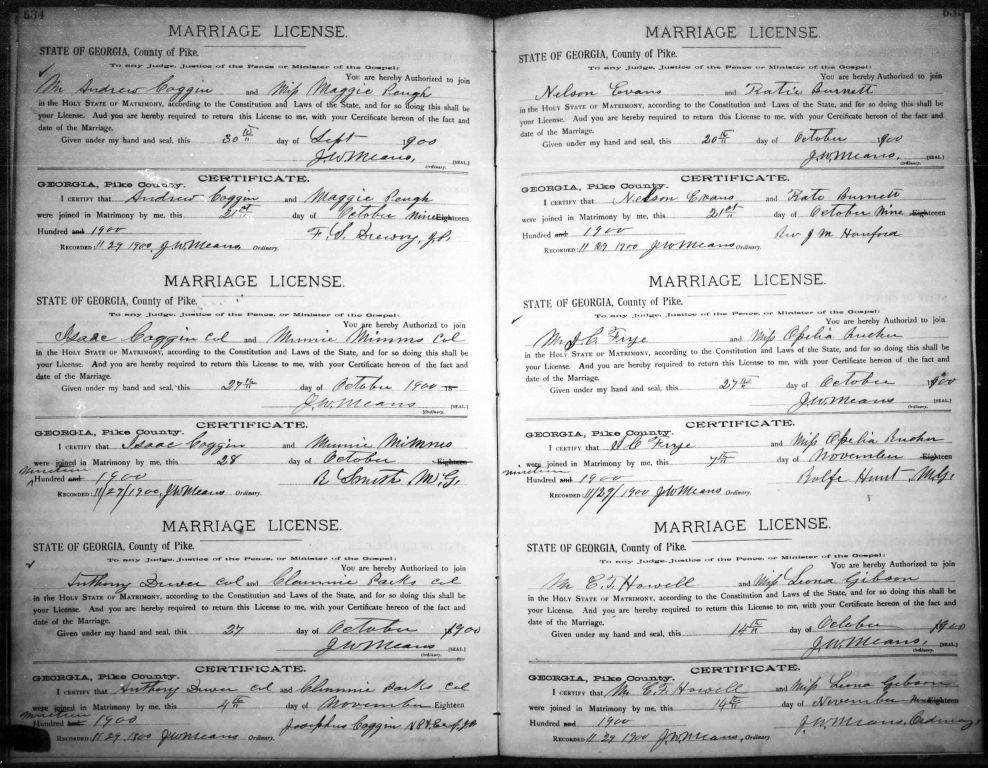 534
MARRIAGE LICENSE.
STATE OF GEORGIA, County of Pike.
To any Judge, Justice of the Peace or Minister of the Gospel:
You are hereby Authorized to join
Mr Andrew Coggin and Miss Maggie Pough
in the HOLY STATE OF MATRIMONY, according to the Constitution and Laws of the State, and for so doing this shall be
your License. And you are hereby required to return this License to me, with your Certificate hereon of the fact and
date of the Marriage.
Given under my hand and seal, this 30th day of Sept 1900
J.W. Means, [SEAL.]
Ordinary.
CERTIFICATE.
GEORGIA, Pike County.
I CERTIFY that Andrew Coggin and Maggie Pough
were joined in Matrimony by me, this 21st day of October Nine Eighteen
Hundred and 1900 F. S. Drewry, J.P.
RECORDED 11 29 1900 J.W. Means, Ordinary.
MARRIAGE LICENSE.
STATE OF GEORGIA, County of Pike.
To any Judge, Justice of the Peace, or Minister of the Gospel:
You are hereby Authorized to join
Isaac Coggin col and Minnie Mimms Col
in the HOLY STATE OF MATRIMONY, according to the Constitution and Laws of the State, and for so doing this shall be
your License. And you are hereby required to return this License to me, with your Certificate hereon of the fact and
date of the Marriage.
Given under my hand and seal, this 27th day of October 1900
J.W. Means [SEAL.]
Ordinary.
CERTIFICATE.
GEORGIA, Pike County.
I CERTIFY that Isaac Coggin and Minnie Mimms
were joined in Matrimony by me, this 28 day of October Eighteen
nineteen
Hundred and 1900 R Smith M.G.
RECORDED 11/29/1900, J.W. Means Ordinary.
MARRIAGE LICENSE.
STATE OF GEORGIA, County of Pike.
To any Judge, Justice of the Peace, or Minister of the Gospel:
You are hereby Authorized to join
Anthony Driver Col and Clemmie Parks col
in the HOLY STATE OF MATRIMONY, according to the Constitution and Laws of the State, and for so doing this shall be
your License. And you are hereby required to return this License to me, with your Certificate hereon of the fact and
date of the Marriage.
Given under my hand and seal, this 27 day of October 1900
J.W. Means [SEAL]
Ordinary.
CERTIFICATE.
GEORGIA, Pike County.
I CERTIFY that Anthony Driver Col and Clemmie Parks Col
were joined in Matrimony by me, this 4th day of November Eighteen
nineteen
Hundred and 1900 Josephus Coggin N.P.
RECORDED 11 29 1900 J.W. Means Ordinary.
MARRIAGE LICENSE.
STATE OF GEORGIA, County of Pike.
To any Judge, Justice of the Peace or Minister of the Gospel:
You are hereby Authorized to join
Nelson Evans and Katie Burnett
in the HOLY STATE OF MATRIMONY, according to the Constitution and Laws of the State, and for so doing this shall be
your License. And you are hereby required to return this License to me, with your Certificate hereon of the fact and
date of the Marriage.
Given under my hand and seal, this 20th day of October 1900
J.W. Means, [SEAL]
Ordinary.
CERTIFICATE.
GEORGIA, Pike County.
I CERTIFY that Nelson Evans and Kate Burnett
were joined in Matrimony by me, this 21st day of October Nine Eighteen
Hundred and 1900 Rev J M Hanford
RECORDED 11 29 1900 J.W. Means Ordinary.
MARRIAGE LICENSE.
STATE OF GEORGIA, County of Pike.
To any Judge, Justice of the Peace, or Minister of the Gospel:
You are hereby Authorized to join
Mr J C Frye and Miss Ophelia
in the HOLY STATE OF MATRIMONY, according to the Constitution and Laws of the State, and for so doing this shall be
your License. And you are hereby required to return this License to me, with your Certificate hereon of the fact and
date of the Marriage.
Given under my hand and seal, this 27th day of October 1900
J.W. Means [SEAL]
Ordinary.
CERTIFICATE.
GEORGIA, Pike County.
I CERTIFY that J C Frye and Miss Ophelia
were joined in Matrimony by me, this 7th day of November Eighteen
nineteen
Hundred and 1900 Rolfe Hunt M.G.
RECORDED 11/29/1900 J.W. Means Ordinary.
MARRIAGE LICENSE.
STATE OF GEORGIA, County of Pike.
To any Judge, Justice of the Peace, or Minister of the Gospel:
You are hereby Authorized to join
Mr C. F. Howell and Miss Leona Gibson
in the HOLY STATE OF MATRIMONY, according to the Constitution and Laws of the State, and for so doing this shall be
your License. And you are hereby required to return this License to me, with your Certificate hereon of the fact and
date of the Marriage.
Given under my hand and seal, this 14th day of October 1900
J.W. Means, [SEAL]
Ordinary.
CERTIFICATE.
GEORGIA, Pike County.
I CERTIFY that Mr C.F. Howell and Miss Leona Gibson
were joined in Matrimony by me, this 14th day of November Eighteen
Hundred and 1900 J.W. Means, Ordinary
RECORDED 11 29 1900 J.W. Means, Ordinary.